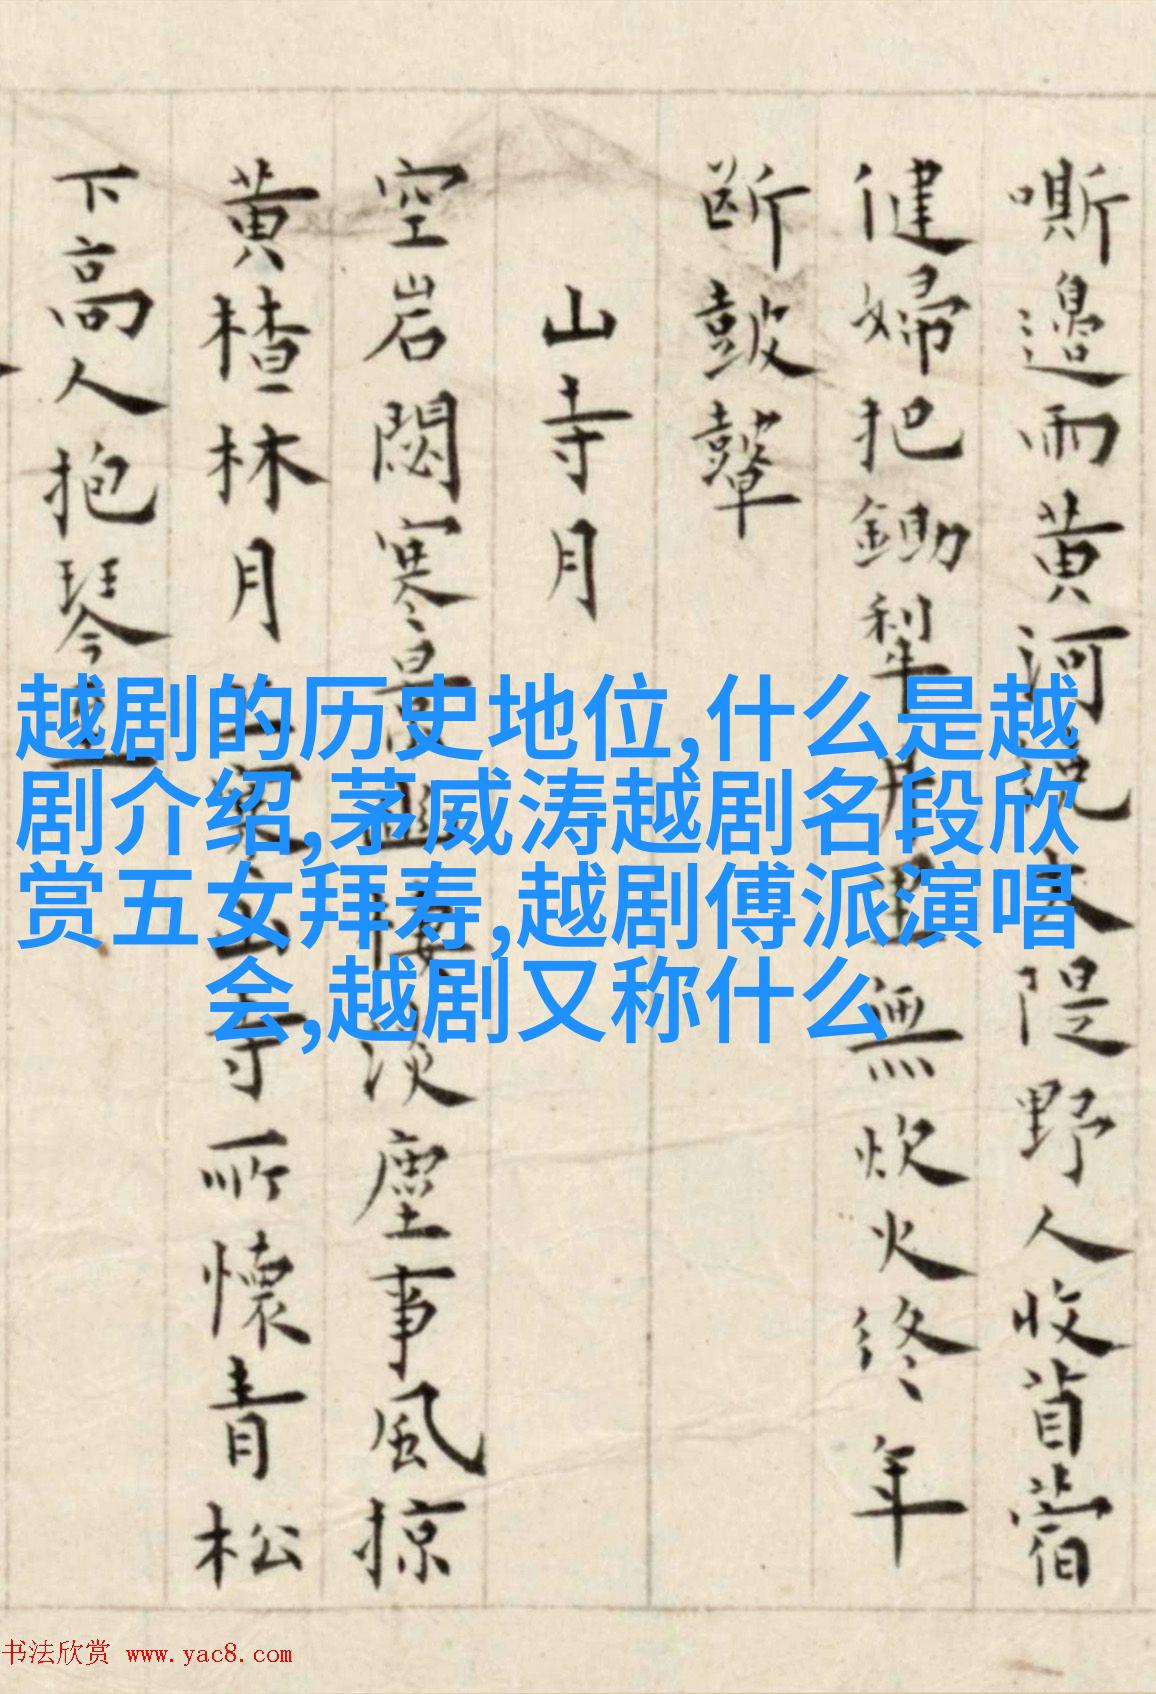 嘶邉雨黄河大隄野人收苜蓿
健婦把鋤犁無炊火終年
断鼓鼙
山寺月
空岩閟寒淡塵事風掠
黄楂林月寺所懷青松
下高人抱琴
越剧的历史地位,什么是越
剧介绍,茅威涛越剧名段欣
赏五女拜寿,越剧傅派演唱
会,越剧又称什么
书法欣赏 www.yac8.com